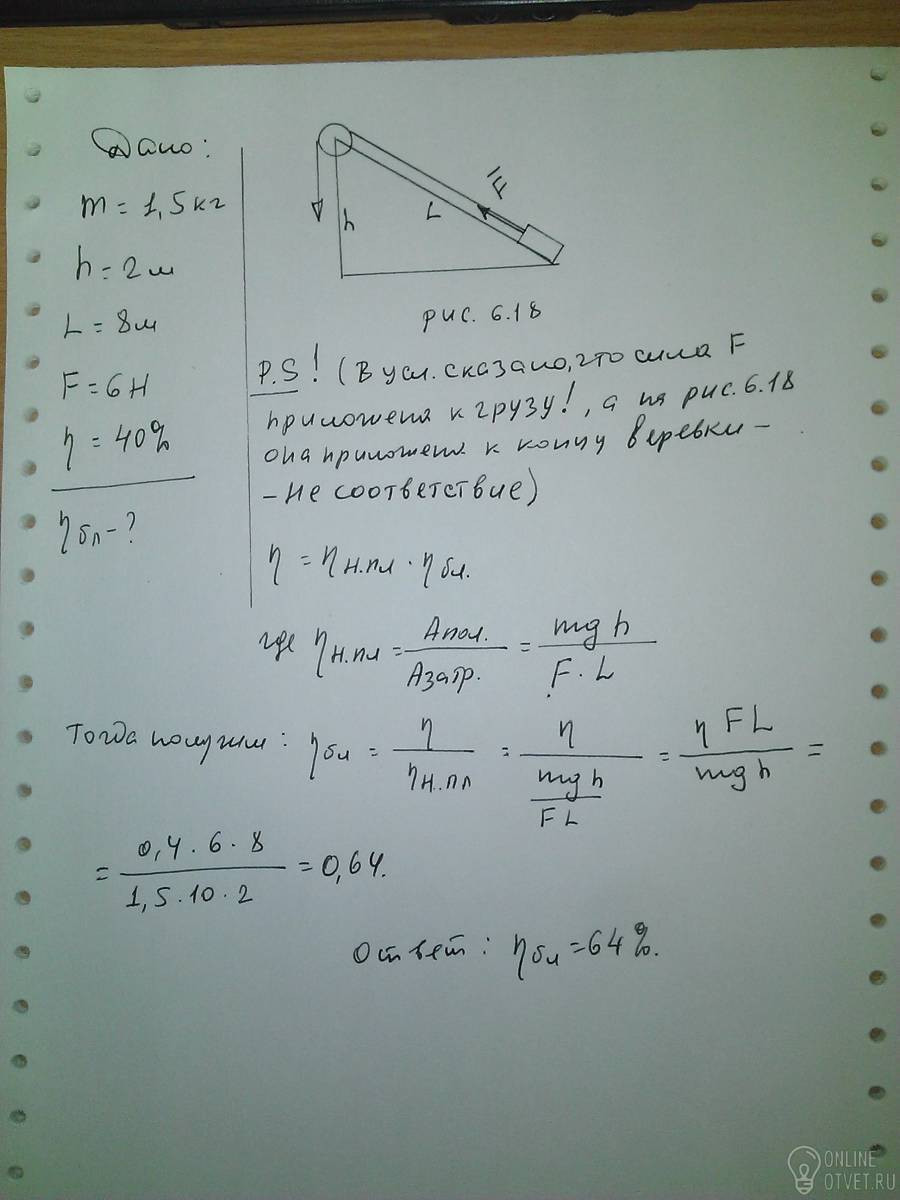 Дано:
m = 1,5 кг
h = 2 м
L = 8 м
F = 6 Н
η = 40%
η бл - ?
h
L
F
рис. 6.18
P.S! (В усл. сказано, что сила F
приложена к грузу!, а на рис. 6.18
она приложена к концу веревки -
- не соответствие)
η = η н.пл · η бл.
где η н.пл = Aпол. / Aзатр. = mgh / F · L
Тогда получим: η бл = η / η н.пл = η / (mgh / FL) = η FL / mgh =
= 0,4 · 6 · 8 / 1,5 · 10 · 2 = 0,64.
Ответ: η бл = 64%.
ONLINE
OTVET.RU